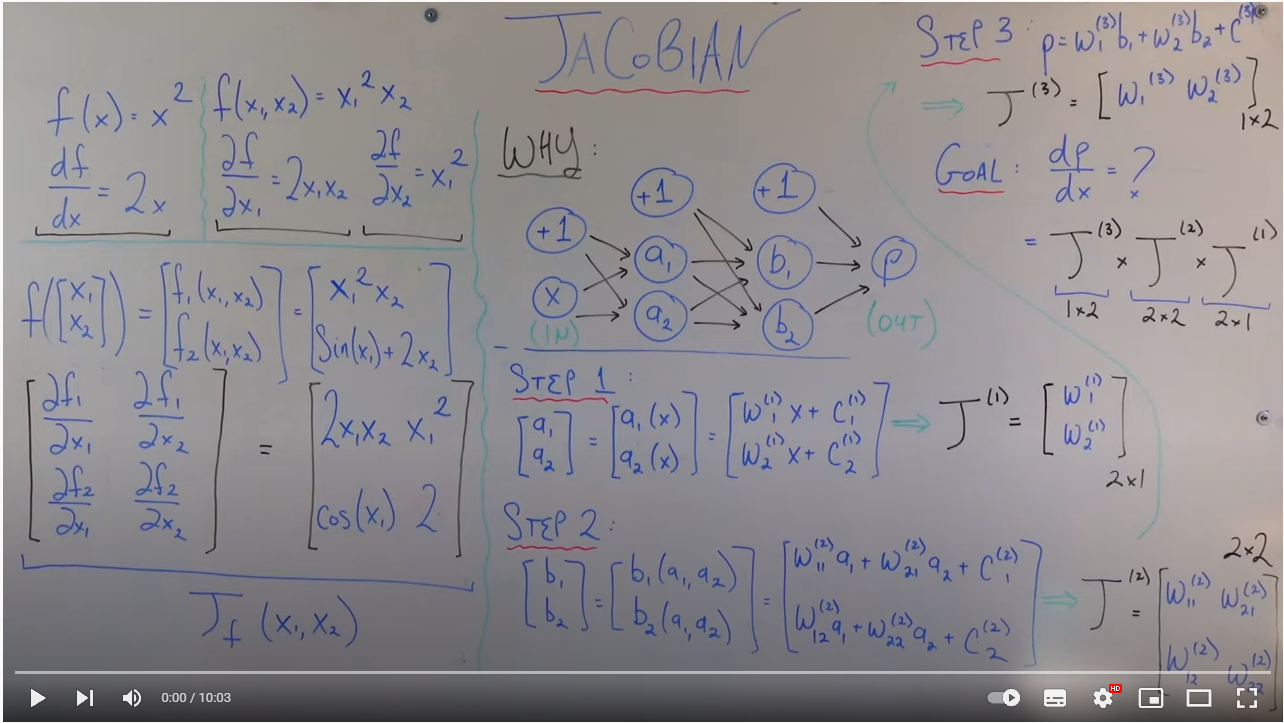 JACOBIAN
f(x) = x²
df/dx = 2x
f(x₁,x₂) = x₁²x₂
∂f/∂x₁ = 2x₁x₂ ∂f/∂x₂ = x₁²
f([x₁ x₂]) = [f₁(x₁,x₂) f₂(x₁,x₂)] = [x₁²x₂ Sin(x₁)+2x₂]
[∂f₁/∂x₁ ∂f₁/∂x₂
∂f₂/∂x₁ ∂f₂/∂x₂] = [2x₁x₂ x₁²
cos(x₁) 2]
J_f (x₁,x₂)
WHY:
+1 +1
+1 a₁ b₁ p
x a₂ b₂
(IN) (OUT)
STEP 1:
[a₁ a₂] = [a₁(x) a₂(x)] = [W₁⁽¹⁾x + C₁⁽¹⁾ W₂⁽¹⁾x + C₂⁽¹⁾] ⇒ J⁽¹⁾ = [W₁⁽¹⁾ W₂⁽¹⁾]
2x1
STEP 2:
[b₁ b₂] = [b₁(a₁,a₂) b₂(a₁,a₂)] = [W₁₁⁽²⁾a₁ + W₂₁⁽²⁾a₂ + C₁⁽²⁾ W₁₂⁽²⁾a₁ + W₂₂⁽²⁾a₂ + C₂⁽²⁾] ⇒ J⁽²⁾ = [W₁₁⁽²⁾ W₂₁⁽²⁾ W₁₂⁽²⁾ W₂₂⁽²⁾]
2x2
STEP 3: p = W₁⁽³⁾b₁ + W₂⁽³⁾b₂ + C⁽³⁾
⇒ J⁽³⁾ = [W₁⁽³⁾ W₂⁽³⁾]
1x2
GOAL: dp/dx = ?
= J⁽³⁾ x J⁽²⁾ x J⁽¹⁾
1x2 2x2 2x1
0:00 / 10:03
HD